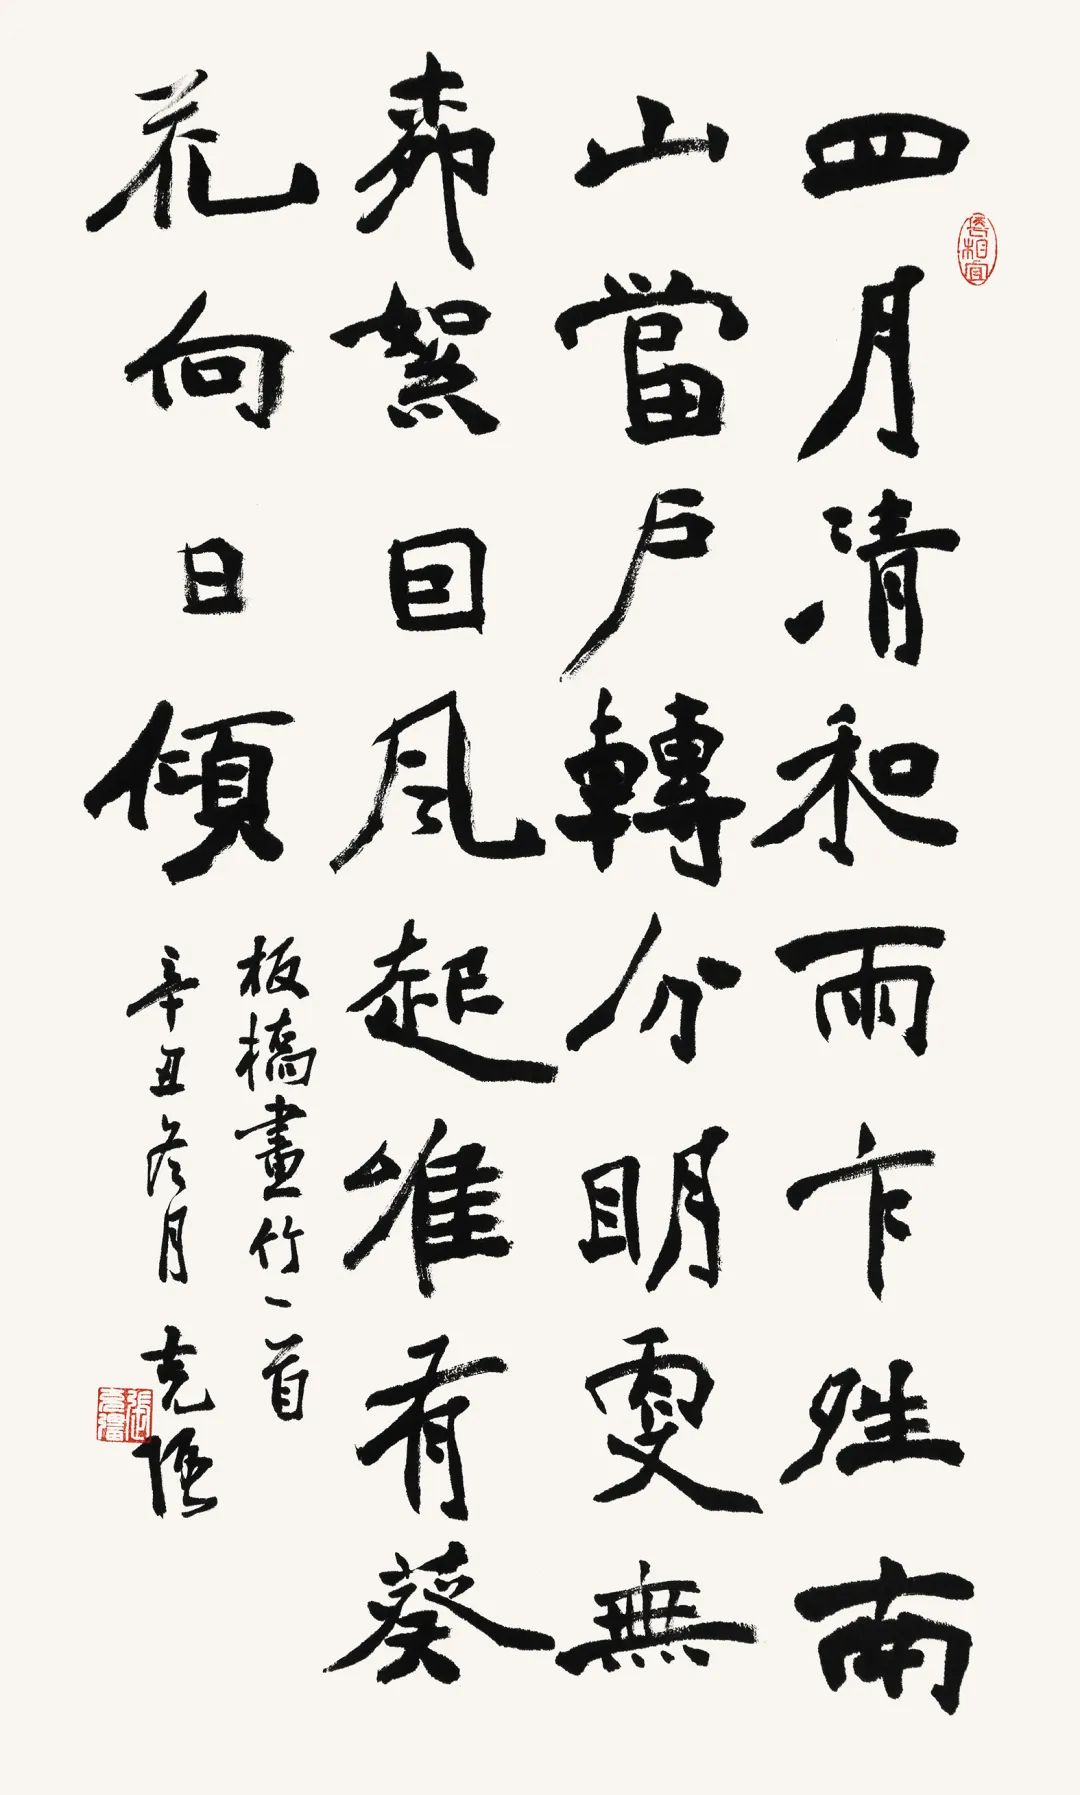 長相宜
四月清和雨乍夝南
山當户轉分眀更無
桺絮囙風起惟有葵
花向日傾
板橋畫竹一首
辛丑冬月 克